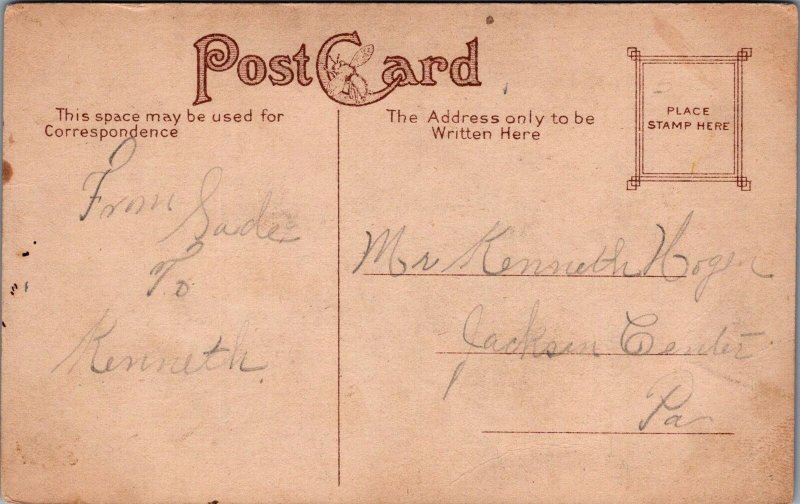 Post Card
This space may be used for
Correspondence
The Address only to be
Written Here
PLACE
STAMP HERE
From Sadie
To
Kenneth
Mr Kenneth Hoger
Jackson Center
Pa